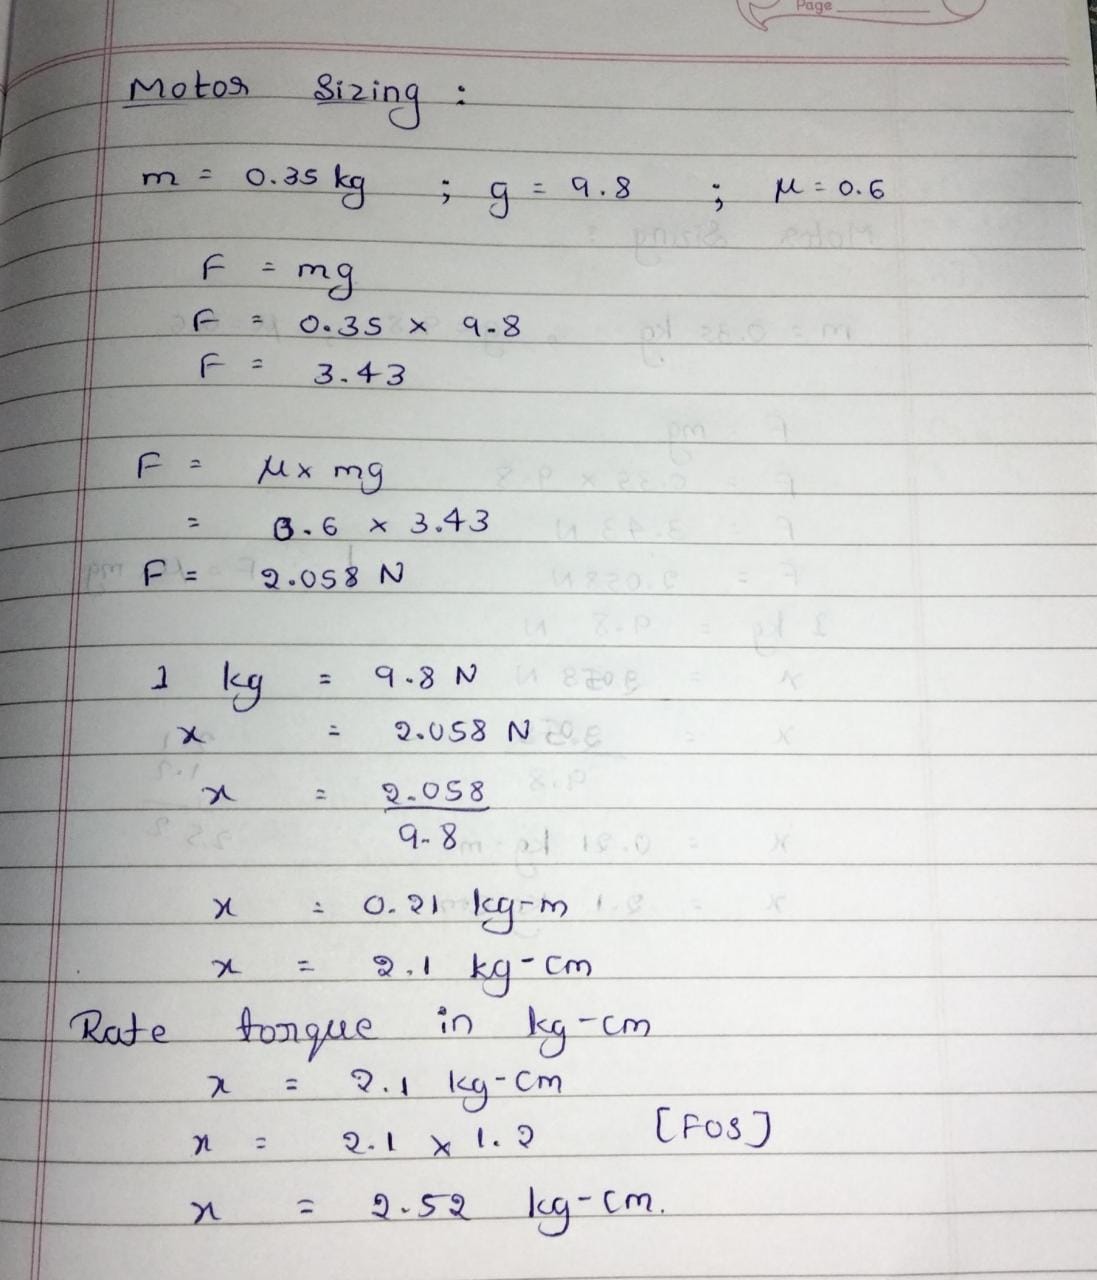 Page
Motor Sizing :
m = 0.35 kg ; g = 9.8 ; μ = 0.6
F = mg
F = 0.35 × 9.8
F = 3.43
F = μ × mg
= 0.6 × 3.43
F = 2.058 N
1 kg = 9.8 N
x = 2.058 N
x = 2.058
9.8
x = 0.21 kg-m
x = 2.1 kg-cm
Rate torque in kg-cm
x = 2.1 kg-cm
x = 2.1 × 1.2 [FOS]
x = 2.52 kg-cm.